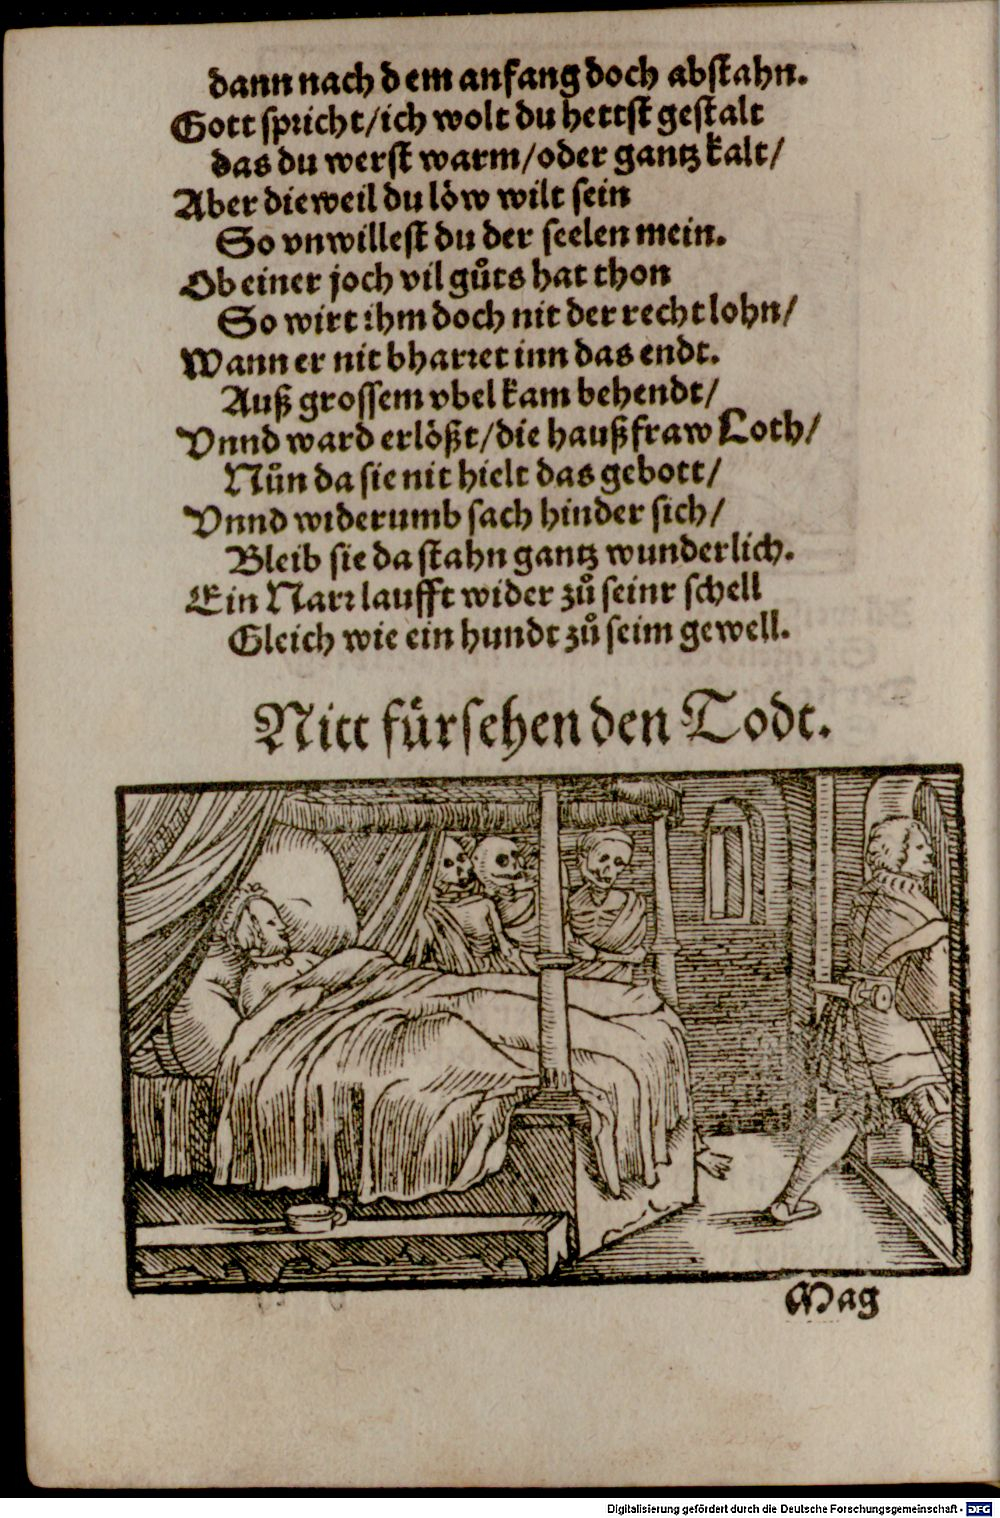 dann nach dem anfang doch abstahn.
Gott spricht/ich wolt du hettst gestalt
das du werst warm/oder gantz kalt/
Aber dieweil du löw wilt sein
So vnwillest du der seelen mein.
Ob einer joch vil gůts hat thon
So wirt ihm doch nit der recht lohn/
Wann er nit bharret inn das endt.
Auß grossem vbel kam behendt/
Vnnd ward erlößt/die haußfraw Loth/
Nůn da sie nit hielt das gebott/
Vnnd widerumb sach hinder sich/
Bleib sie da stahn gantz wunderlich.
Ein Narr laufft wider zů seinr schell
Gleich wie ein hundt zů seim gewell.
Nitt fürsehen den Todt.
Mag
Digitalisierung gefördert durch die Deutsche Forschungsgemeinschaft - DFG